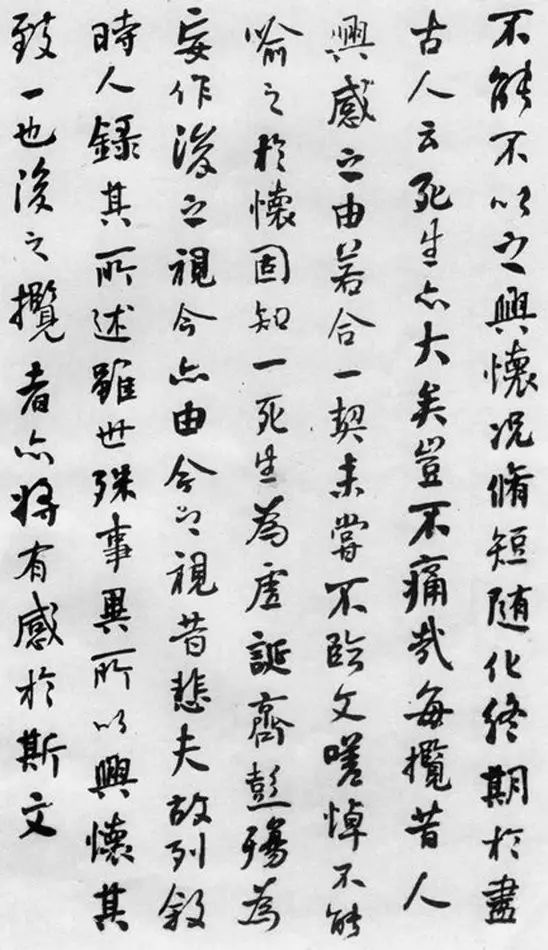 不能不以之興懷況脩短隨化終期於盡
古人云死生亦大矣豈不痛哉每攬昔人
興感之由若合一契未嘗不臨文嗟悼不能
喻之於懷固知一死生為虛誕齊彭殤為
妄作後之視今亦由今之視昔悲夫故列敘
時人錄其所述雖世殊事異所以興懷其
致一也後之攬者亦將有感於斯文